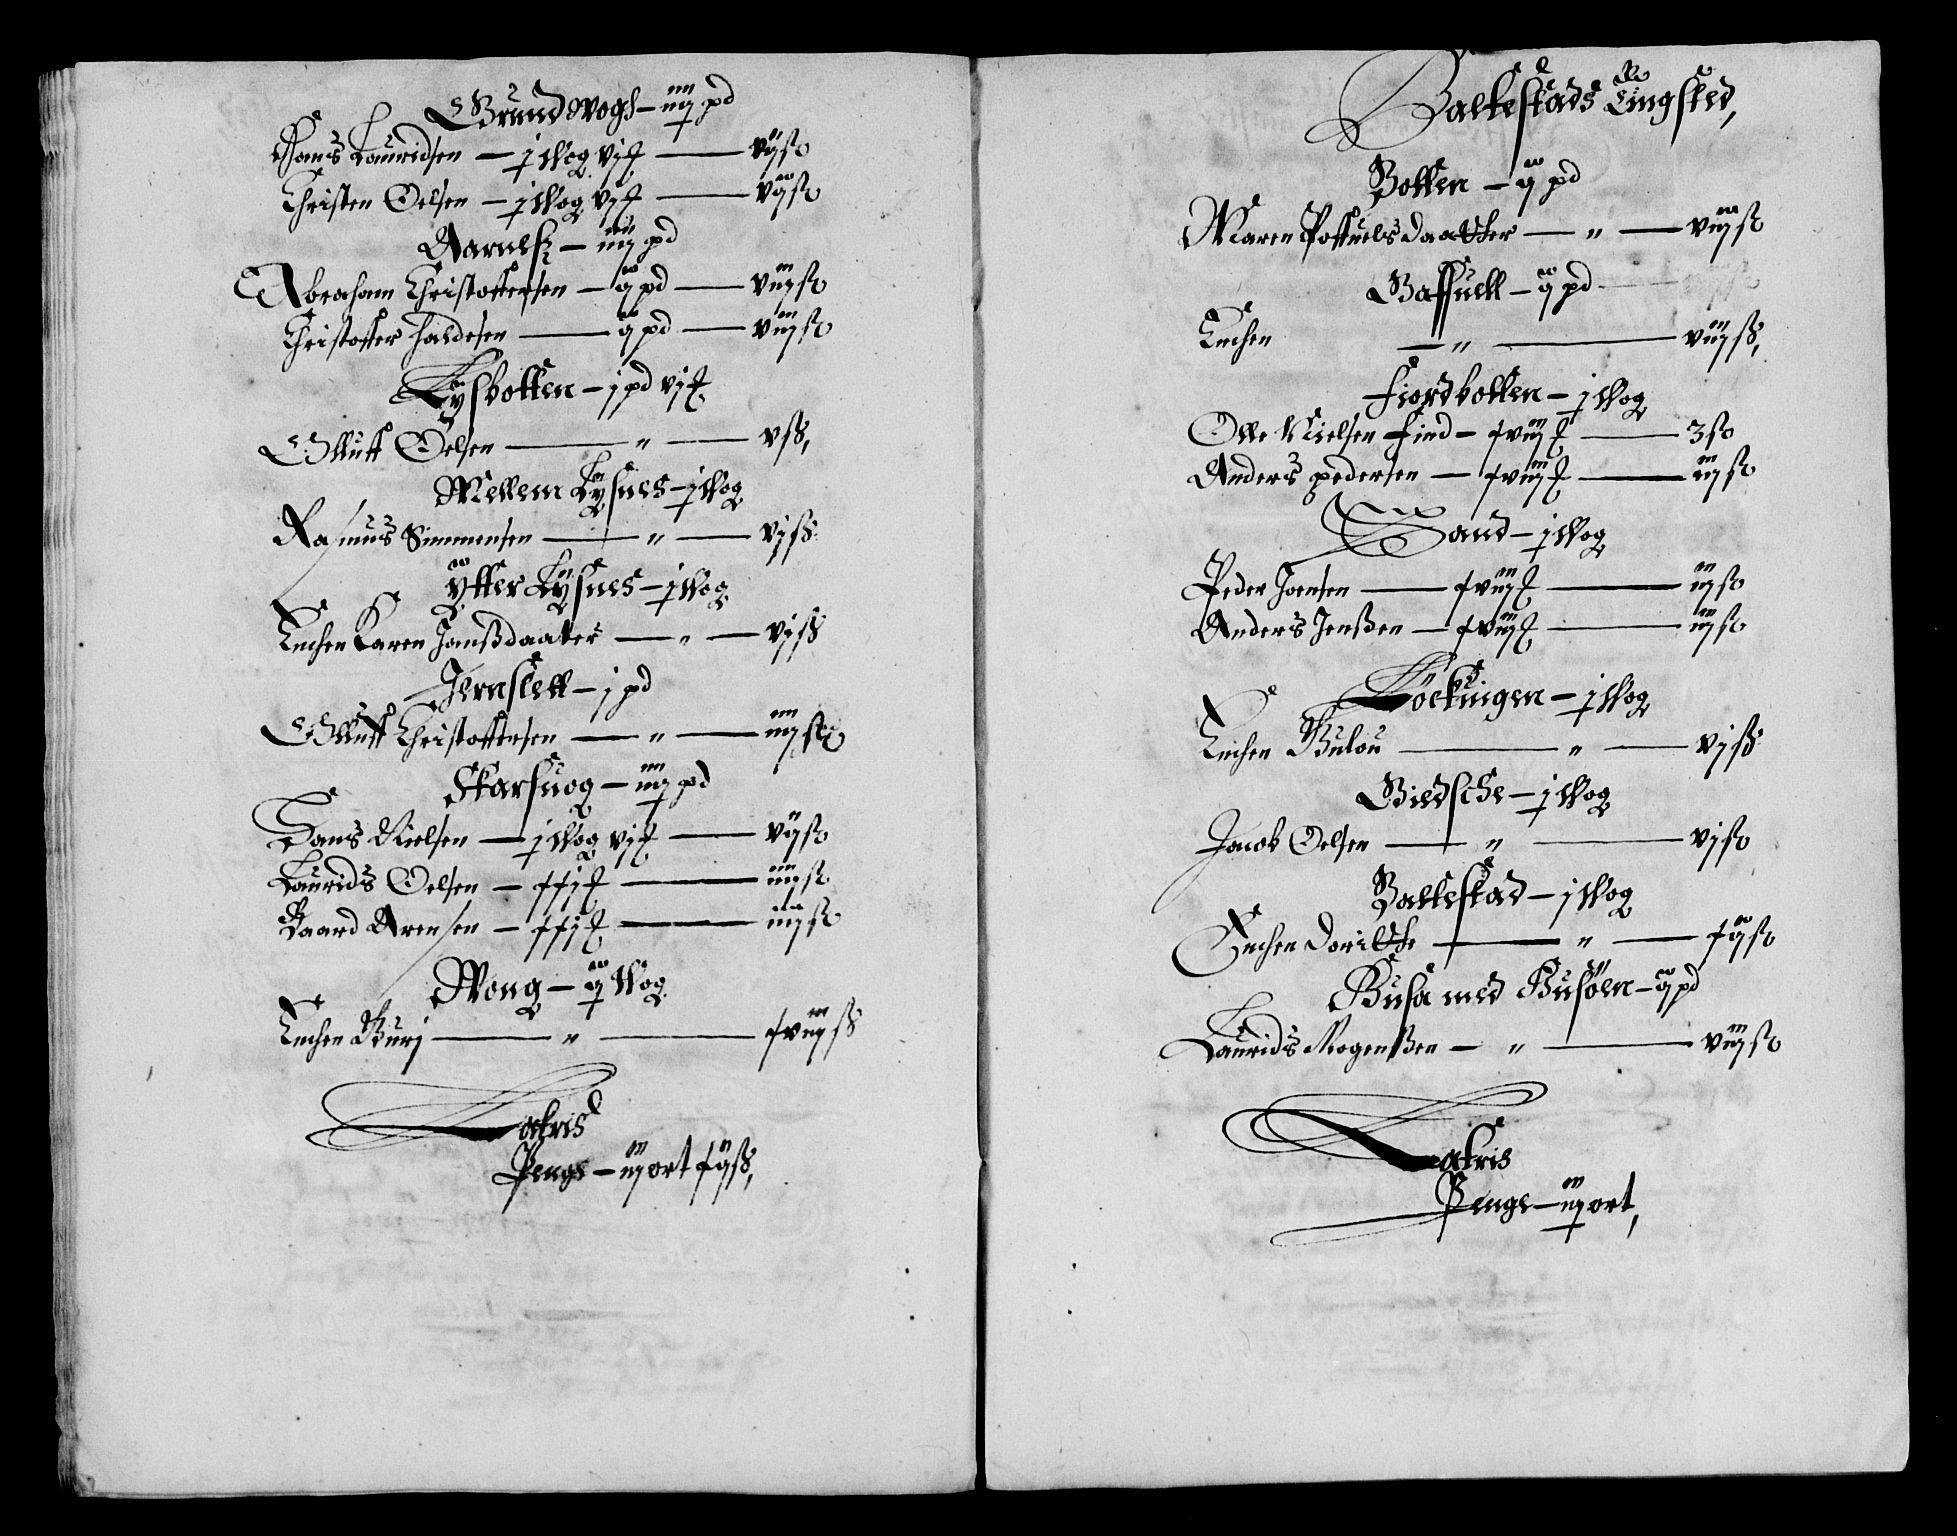 Grundwogh – iiij pd
Hans Lauridsen – j Wog vj ℔ – vij ß
Christen Oelsen – j Wog vj ℔ – vij ß
Aarnes – iiij pd
Abraham Christoffersen – ij pd – viij ß
Christoffer – ij pd – viij ß
Lysbotten – j pd vj ℔
Oluff Oelsen – " – v ß,
Mellem Lysnes – j Wog
Rasmus Simmensen – " – vj ß
Ytter Lysnes – j Wog
Enchen Karen Jonßdaater – " – vj ß
Jernslett – j pd
Oluff Christoffersen – " – iiij ß
Skarsuog – iiij pd
Hans Nielsen – j Wog vj ℔ – vij ß
Laurids Oelsen – xxj ℔ – iiij ß
Baard Arensen – xxj ℔ – iiij ß
Wong – ij Wog
Enchen Burj – " – xviij ß
Latris
Penge – iij ort xij ß,
Balkestads Tingsted,
Botten – ij pd
Maren Poffuels daatter – " – viij ß
Baffuell – ij pd
Enchen – " – viij ß,
Fiordbotten – j Wog
Olle Nielsen Find – xviij ℔ – 3 ß
Anders pedersen – xviij ℔ – iij ß
Sand – j Wog
Peder Joensen – xviij ℔ – iij ß
Anders Jenßen – xviij ℔ – iij ß
Löckingen – j Wog
Enchen Bulou – " – vj ß
Giedsche – j Wog
Jacob Oelsen – " – vj ß
Balkestad – j Wog
Enchen Doritthe – " – xij ß
Busa med Busöen – ij pd
Laurids Mogenßen – " – viij ß
Latris
Penge – iij ort,